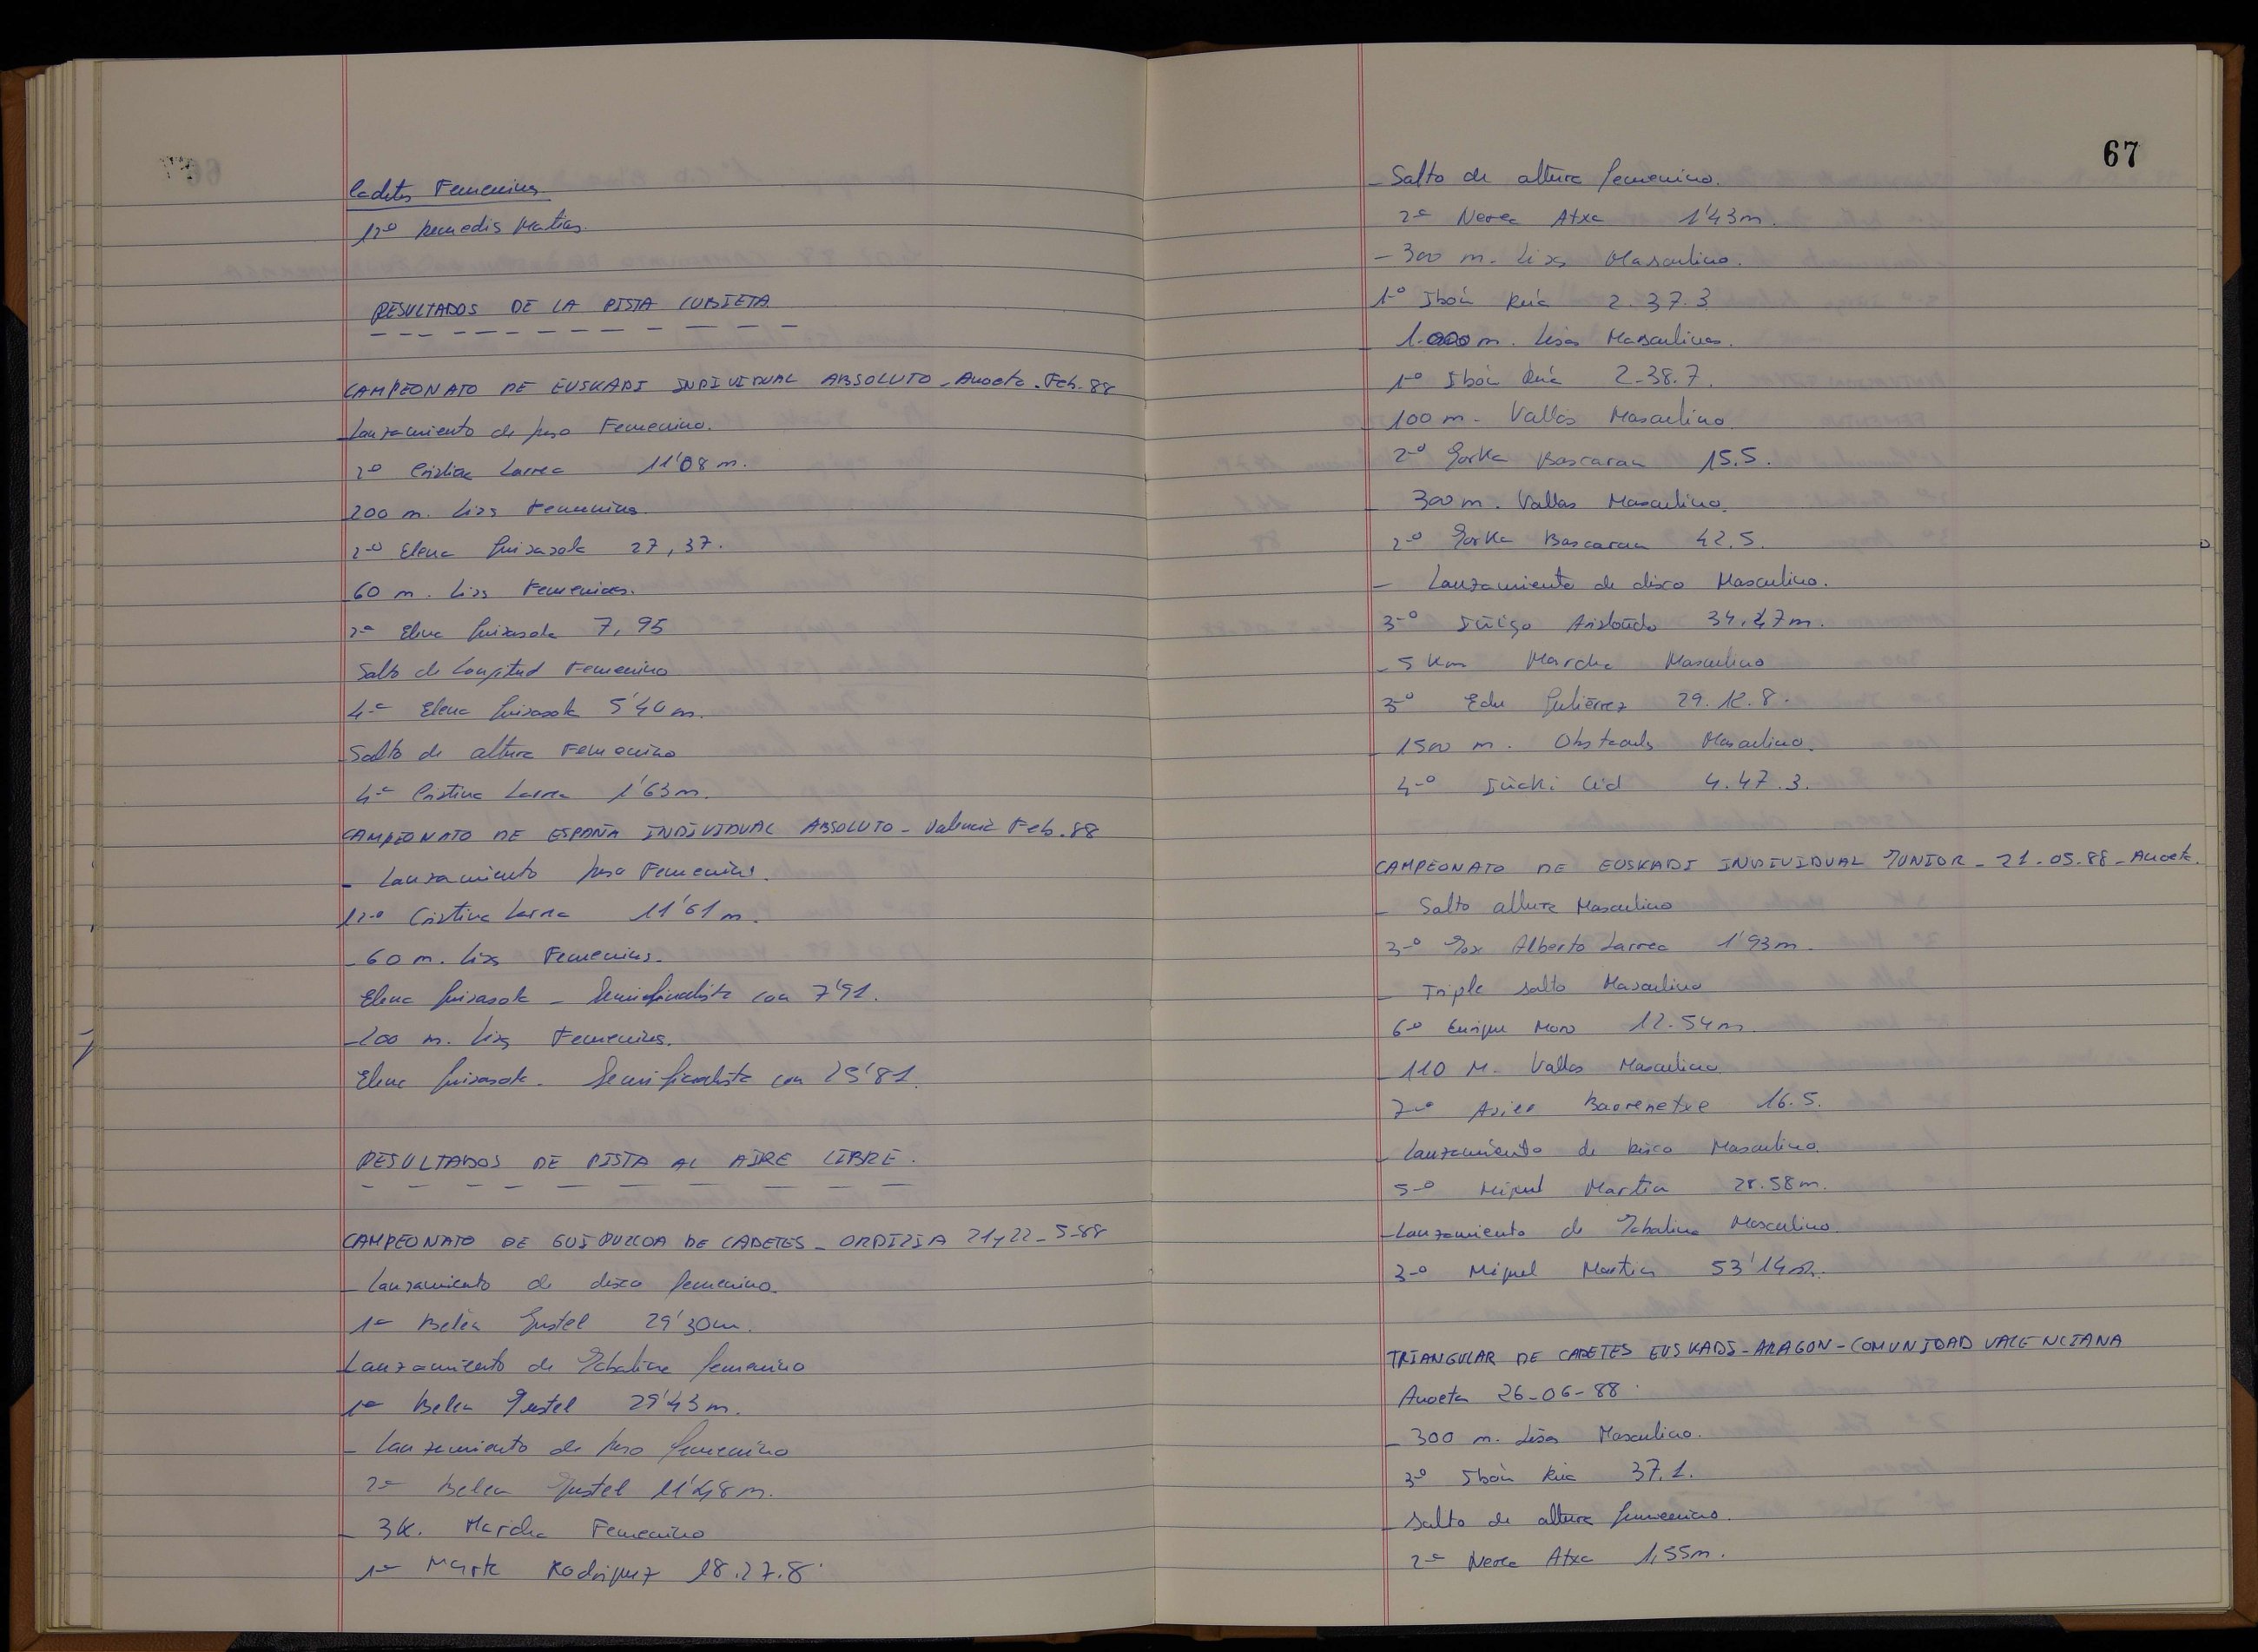 Cadetes Femeninos
12º Remedis Matias.
RESULTADOS DE LA PISTA CUBIETA
CAMPEONATO DE EUSKADI INDIVIDUAL ABSOLUTO - Anoeta - Feb-88
Lanzamiento de peso Femenino.
2º Cristina Larrea 11'08 m.
200 m. Lisos Femeninos.
2º Elena Guisasola 27,37.
60 m. Lisos Femeninos.
2ª Elena Guisasola 7,95
Salto de Longitud Femenino
4ª Elena Guisasola 5'40 m.
Salto de altura Femenino
4ª Cristina Larrea 1'63 m.
CAMPEONATO DE ESPAÑA INDIVIDUAL ABSOLUTO - Valencia Feb-88
- Lanzamiento peso Femenino.
12º Cristina Larrea 11'61 m.
- 60 m. Lisos Femeninos.
Elena Guisasola - Semifinalista con 7'91.
- 200 m. Lisos Femeninos.
Elena Guisasola - Semifinalista con 25'81.
RESULTADOS DE PISTA AL AIRE LIBRE.
CAMPEONATO DE GUIPUZCOA DE CADETES - ORDIZIA 21y22-5-88
- Lanzamiento de disco femenino.
1ª Belén Gustel 29'30m.
Lanzamiento de Jabalina femenino
1ª Belen Gustel 29'43 m.
- Lanzamiento de peso femenino
2ª Belen Gustel 11'48 m.
- 3K. Marcha Femenino
1ª Marta Rodriguez 18.27.8
67
- Salto de altura femenino.
2ª Nerea Atxa 1'43m.
- 300 m. Lisos Masculino.
1º Ibón Rúa 2.37.3
- 1.000 m. Lisos Masculinos.
1º Ibón Rúa 2-38.7.
- 100 m. Vallas Masculino
2º Gorka Bascaran 15.5.
- 300 m. Vallas Masculino.
2º Gorka Bascaran 42.5.
- Lanzamiento de disco Masculino.
3º Iñigo Aristondo 34.27m.
- 5 Km Marcha Masculino
3º Edu Gutiérrez 29.12.8.
- 1500 m. Obstaculos Masculino.
4º Iñaki Cid 4.47.3.
CAMPEONATO DE EUSKADI INDIVIDUAL JUNIOR - 21-05-88 - Anoeta.
- Salto altura Masculino
3º Jose Alberto Larrea 1'93m.
- Triple salto Masculino
6º Enrique Moro 12.54m.
- 110 M. Vallas Masculino.
7º Asier Baorenetxe 16.5.
- Lanzamiento de Disco Masculino.
5º Miguel Martin 28.58m.
- Lanzamiento de Jabalina Masculino
3º Miguel Martin 53'14m.
TRIANGULAR DE CADETES EUSKADI-ARAGON-COMUNIDAD VALENCIANA
Anoeta 26-06-88.
- 300 m. Lisos Masculino.
3º Ibón Rúa 37.1.
- Salto de altura femenino.
2ª Nerea Atxa 1,55m.